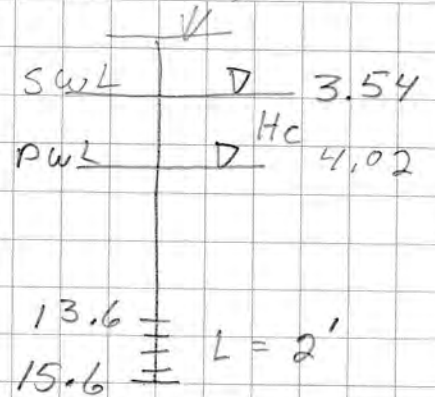 SWL 3.54
Hc
PWL 4.02
13.6
L = 2'
15.6